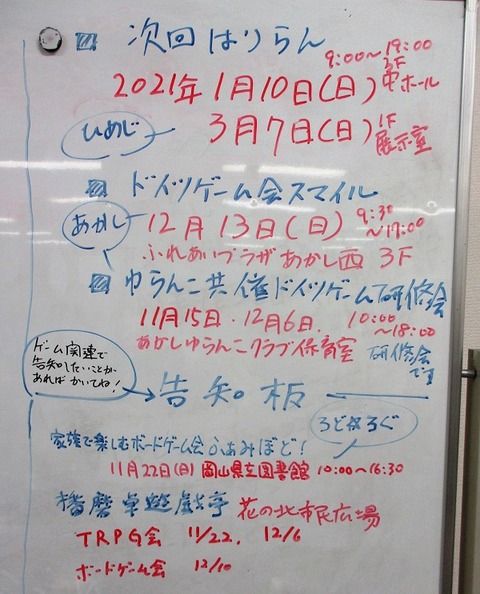 次回はりらん
9:00～19:00
2021年1月10日(日) 3F 中ホール
ひめじ
3月7日(日) 1F 展示室
ドイツゲーム会スマイル
あかし
12月13日(日) 9:30～17:00
ふれあいプラザあかし西 3F
ゆらんこ共催ドイツゲーム研修会
11月15日・12月6日. 10:00～18:00
あかしゆらんこクラブ保育室 研修会です
ゲーム関連で
告知したいことが
あればかいてね!
告知板
家族で楽しむボードゲーム会ふぁみぼど!
11月22日(日) 岡山県立図書館 10:00～16:30
播磨卓遊戯亭 花の北市民広場
TRPG会 11/22. 12/6
ボードゲーム会 12/10